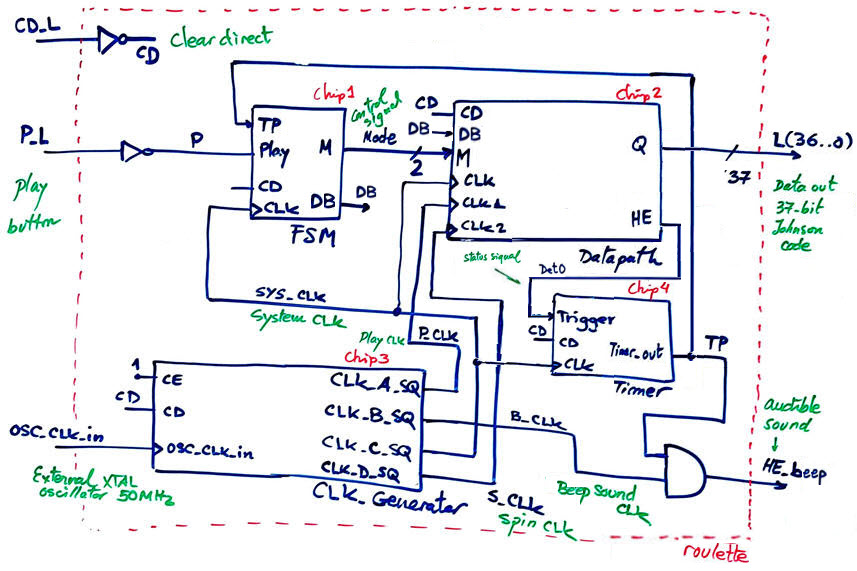 CD_L
CD
Clear direct
Chip1
Control signal
Chip2
P_L
P
TP
Play
CD
CLK
M
DB
FSM
DB
Mode
2
CD
DB
CD
DB
M
CLK
CLK1
CLK2
Q
HE
Datapath
37
L(36..0)
Data out
37-bit
Johnson
code
play
button
status signal
Det0
Chip4
SYS_CLK
System CLK
Play CLK
P_CLK
CD
Trigger
CD
CLK
Timer_out
Timer
TP
Chip3
1
CE
CD
CD
OSC_CLK_in
OSC_CLK_in
External XTAL
oscillator 50MHz
CLK_A_SQ
CLK_B_SQ
CLK_C_SQ
CLK_D_SQ
CLK_Generator
B_CLK
S_CLK
Spin CLK
Beep Sound
CLK
audible
sound
HE_beep
roulette